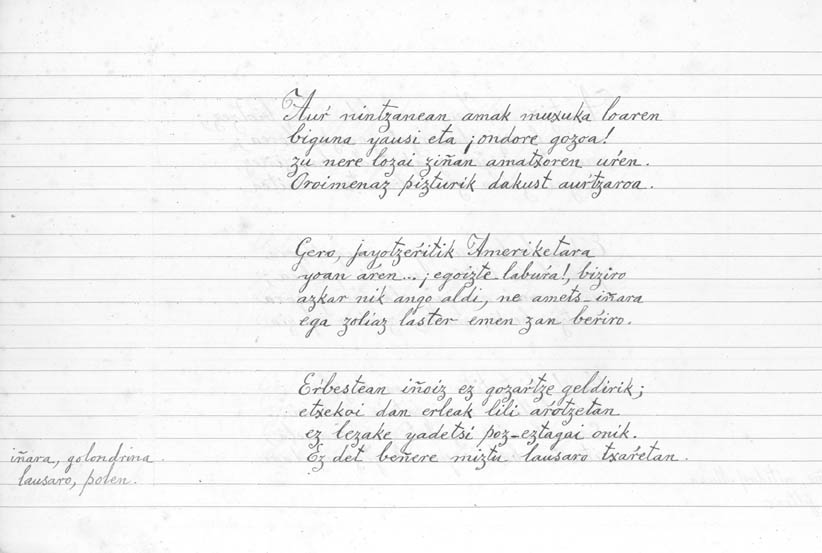 Auŕ nintzanean amak muxuka loaren
biguna yausi eta ¡ondore gozoa!
zu nere lozai ziñan amatxoren uŕen.
Oroimenaz pizturik dakust auŕtzaroa.
Gero, jayotzeŕitik Ameriketara
yoan aŕen... ¡egoizte labuŕa!, biziro
azkar nik ango aldi, ne amets-iñara
ega zoliaz laster emen zan beŕiro.
Eŕbestean iñoiz ez gozaŕtze geldirik;
etxekoi dan erleak lili aŕotzetan
ez lezake yadetsi poz-eztagai onik.
Ez det beñere miztu lausaro txaŕetan.
iñara, golondrina.
lausaro, polen.